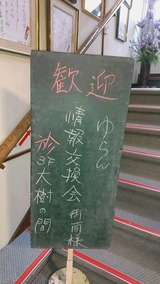 歓迎
ゆらん
情報交換会 御一同様
於 3F 大樹の間